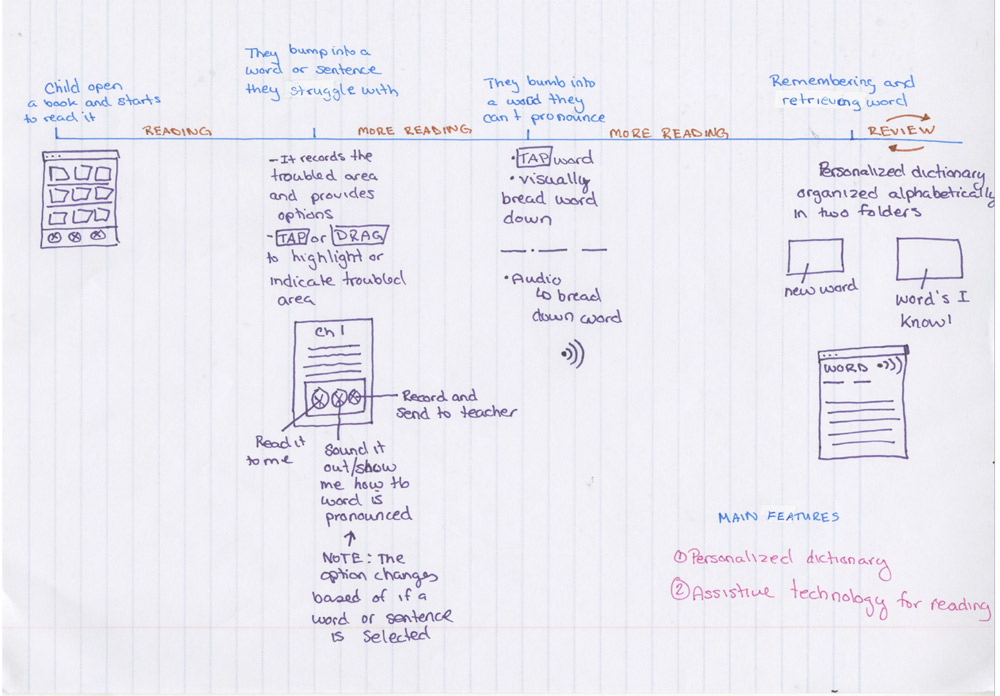 Child open
a book and starts
to read it
They bump into a
word or sentence
they struggle with
They bumb into
a word they
can't pronounce
Remembering and
retrieving word
READING
MORE READING
MORE READING
REVIEW
- It records the
troubled area
and provides
options
- TAP or DRAG
to highlight or
indicate troubled
area
Ch 1
Record and
send to teacher
Read it
to me
Sound it
out/show
me how th
word is
pronounced
NOTE: The
option changes
based of if a
word or sentence
is selected
• TAP word
• visually
bread word
down
• Audio
↳ bread
down word
Personalized dictionary
organized alphabetically
in two folders
new word
word's I
know!
WORD
MAIN FEATURES
① Personalized dictionary
② Assistive technology for reading